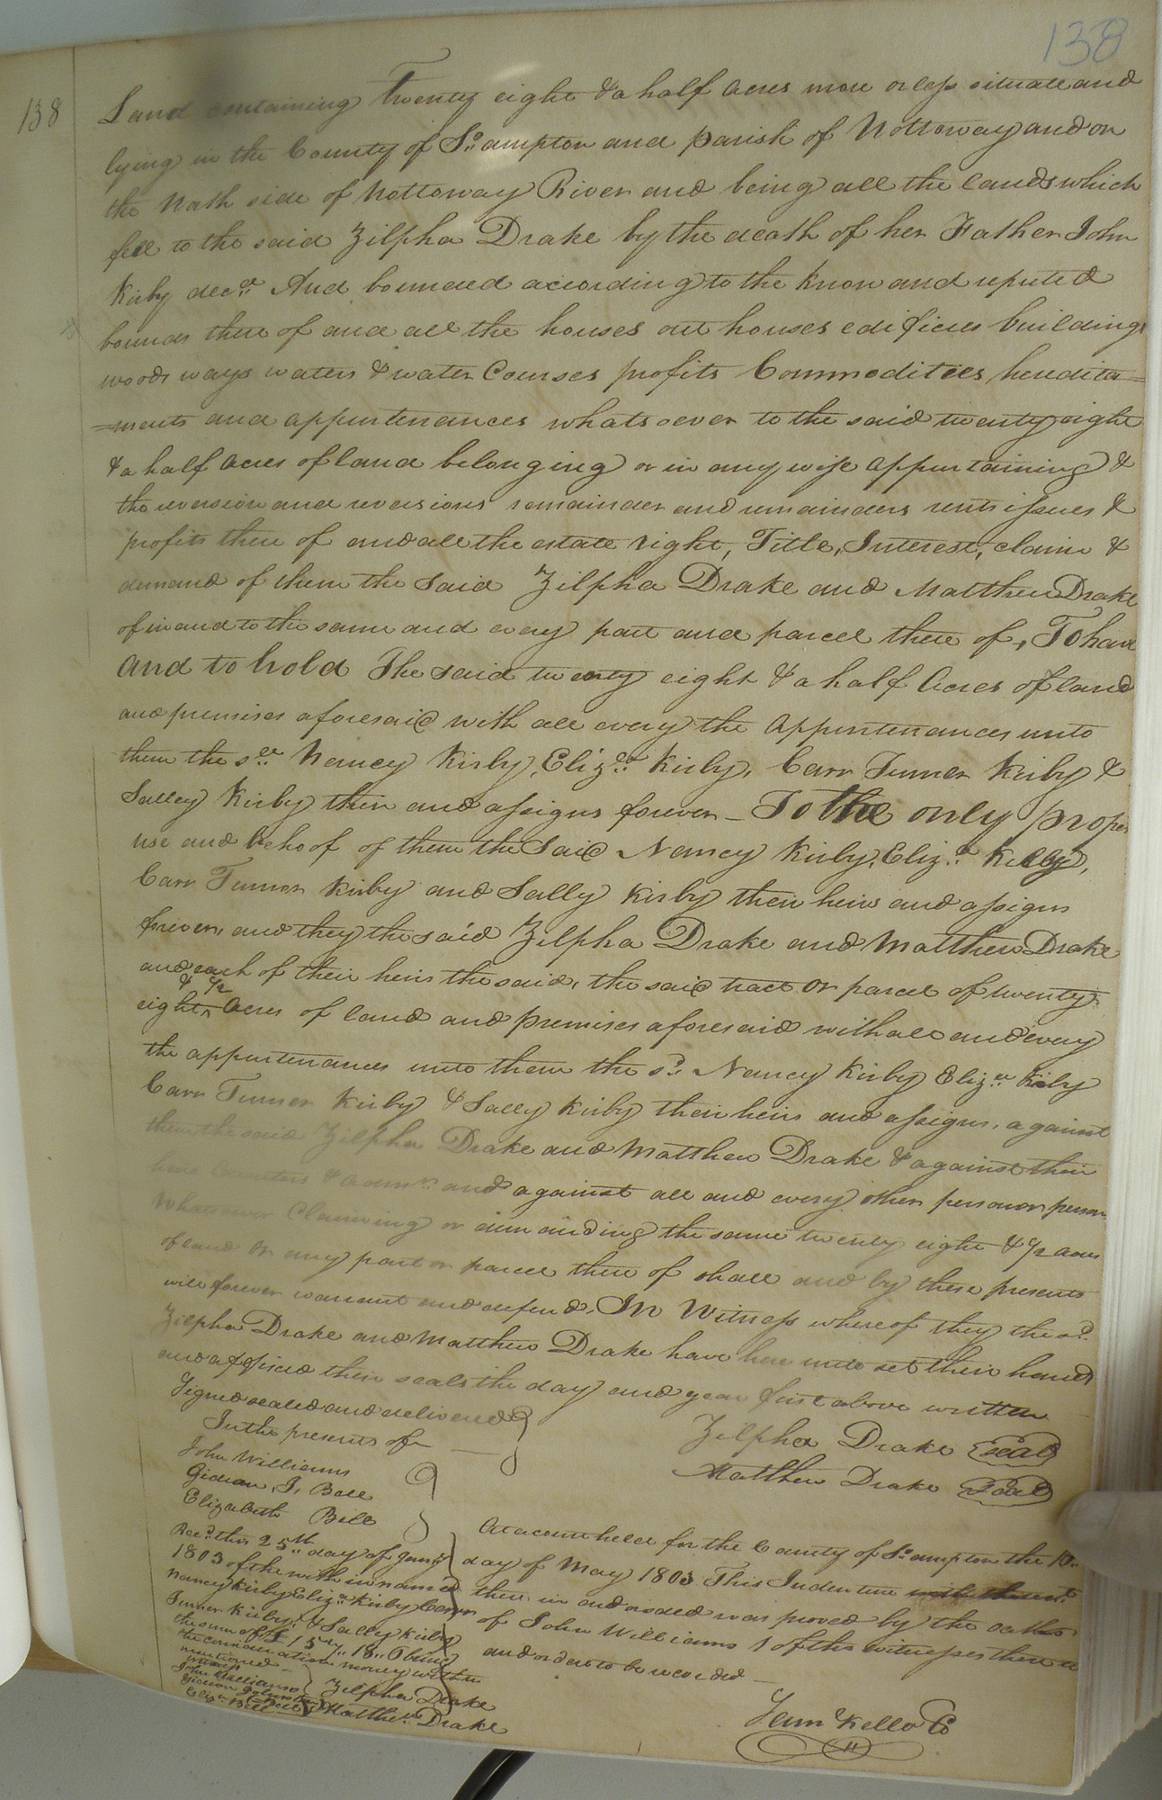 138
138
Land containing Twenty eight & a half Acres more or less situate and
lying in the County of So. ampton and parish of Nottoway and on
the North side of Nottoway River and being all the lands which
fell to the said Zilpha Drake by the death of her Father John
Kirby decd. And bounded according to the know and reputed
bounds there of and all the houses out houses edifices buildings
woods ways waters & water Courses profits Commodities heredita=
=ments and appurtenances whatsoever to the said twenty eight
& a half Acres of land belonging or in any wise appurtaining &
the reversion and reversions remainder and remainders rents issues &
profits there of and all the estate right, Title, Interest, claim &
demand of them the said Zilpha Drake and Matthew Drake
of in and to the same and every part and parcel there of, To have
and to hold The said twenty eight & a half Acres of land
and premises aforesaid with all every the appurtenances unto
them the sd. Nancy Kirby, Eliza. Kirby, Carr Turner Kirby &
Salley Kirby their and assigns forever - To the only proper
use and behoof of them the said Nancy Kirby, Eliza. Kirby,
Carr Turner Kirby and Sally Kirby their heirs and assigns
forever, and they the said Zilpha Drake and Matthew Drake
and each of their heirs the said, the said tract or parcel of twenty
& 1/2
eight Acres of land and premises aforesaid with all and every
the appurtenances unto them the sd. Nancy Kirby Eliza. Kirby
Carr Turner Kirby & Sally Kirby their heirs and assigns, against
them the said Zilpha Drake and Matthew Drake & against their
heirs & admrs. and against all and every other person or persons
whatsoever Claiming or demanding the same twenty eight & 1/2 acres
of land or any part or parcel there of shall and by these presents
will forever warrant and defend. In Witness whereof they the sd.
Zilpha Drake and Matthew Drake have here unto set their hands
and affixed their seals the day and year first above written
Signed sealed and delivered
In the presents of
John Williams
Gideon, J, Bell
Elizabeth Bell
Zilpha Drake (Seal)
Matthew Drake (Seal)
Recd. this 25th. day of
1803 of the with in named
Nancy Kirby Eliza. Kirby Carr
Turner Kirby & Salley Kirby
the sum of
the consideration money within
mentioned
John Williams
Zilpha Drake
Matthew Drake
At a court held for the County of So. ampton the 16..
day of May 1803 This Indenture
there in endorsed was proved by the oaths
of John Williams 1 of the witnesses there to
and orders to be recorded
Saml Kello